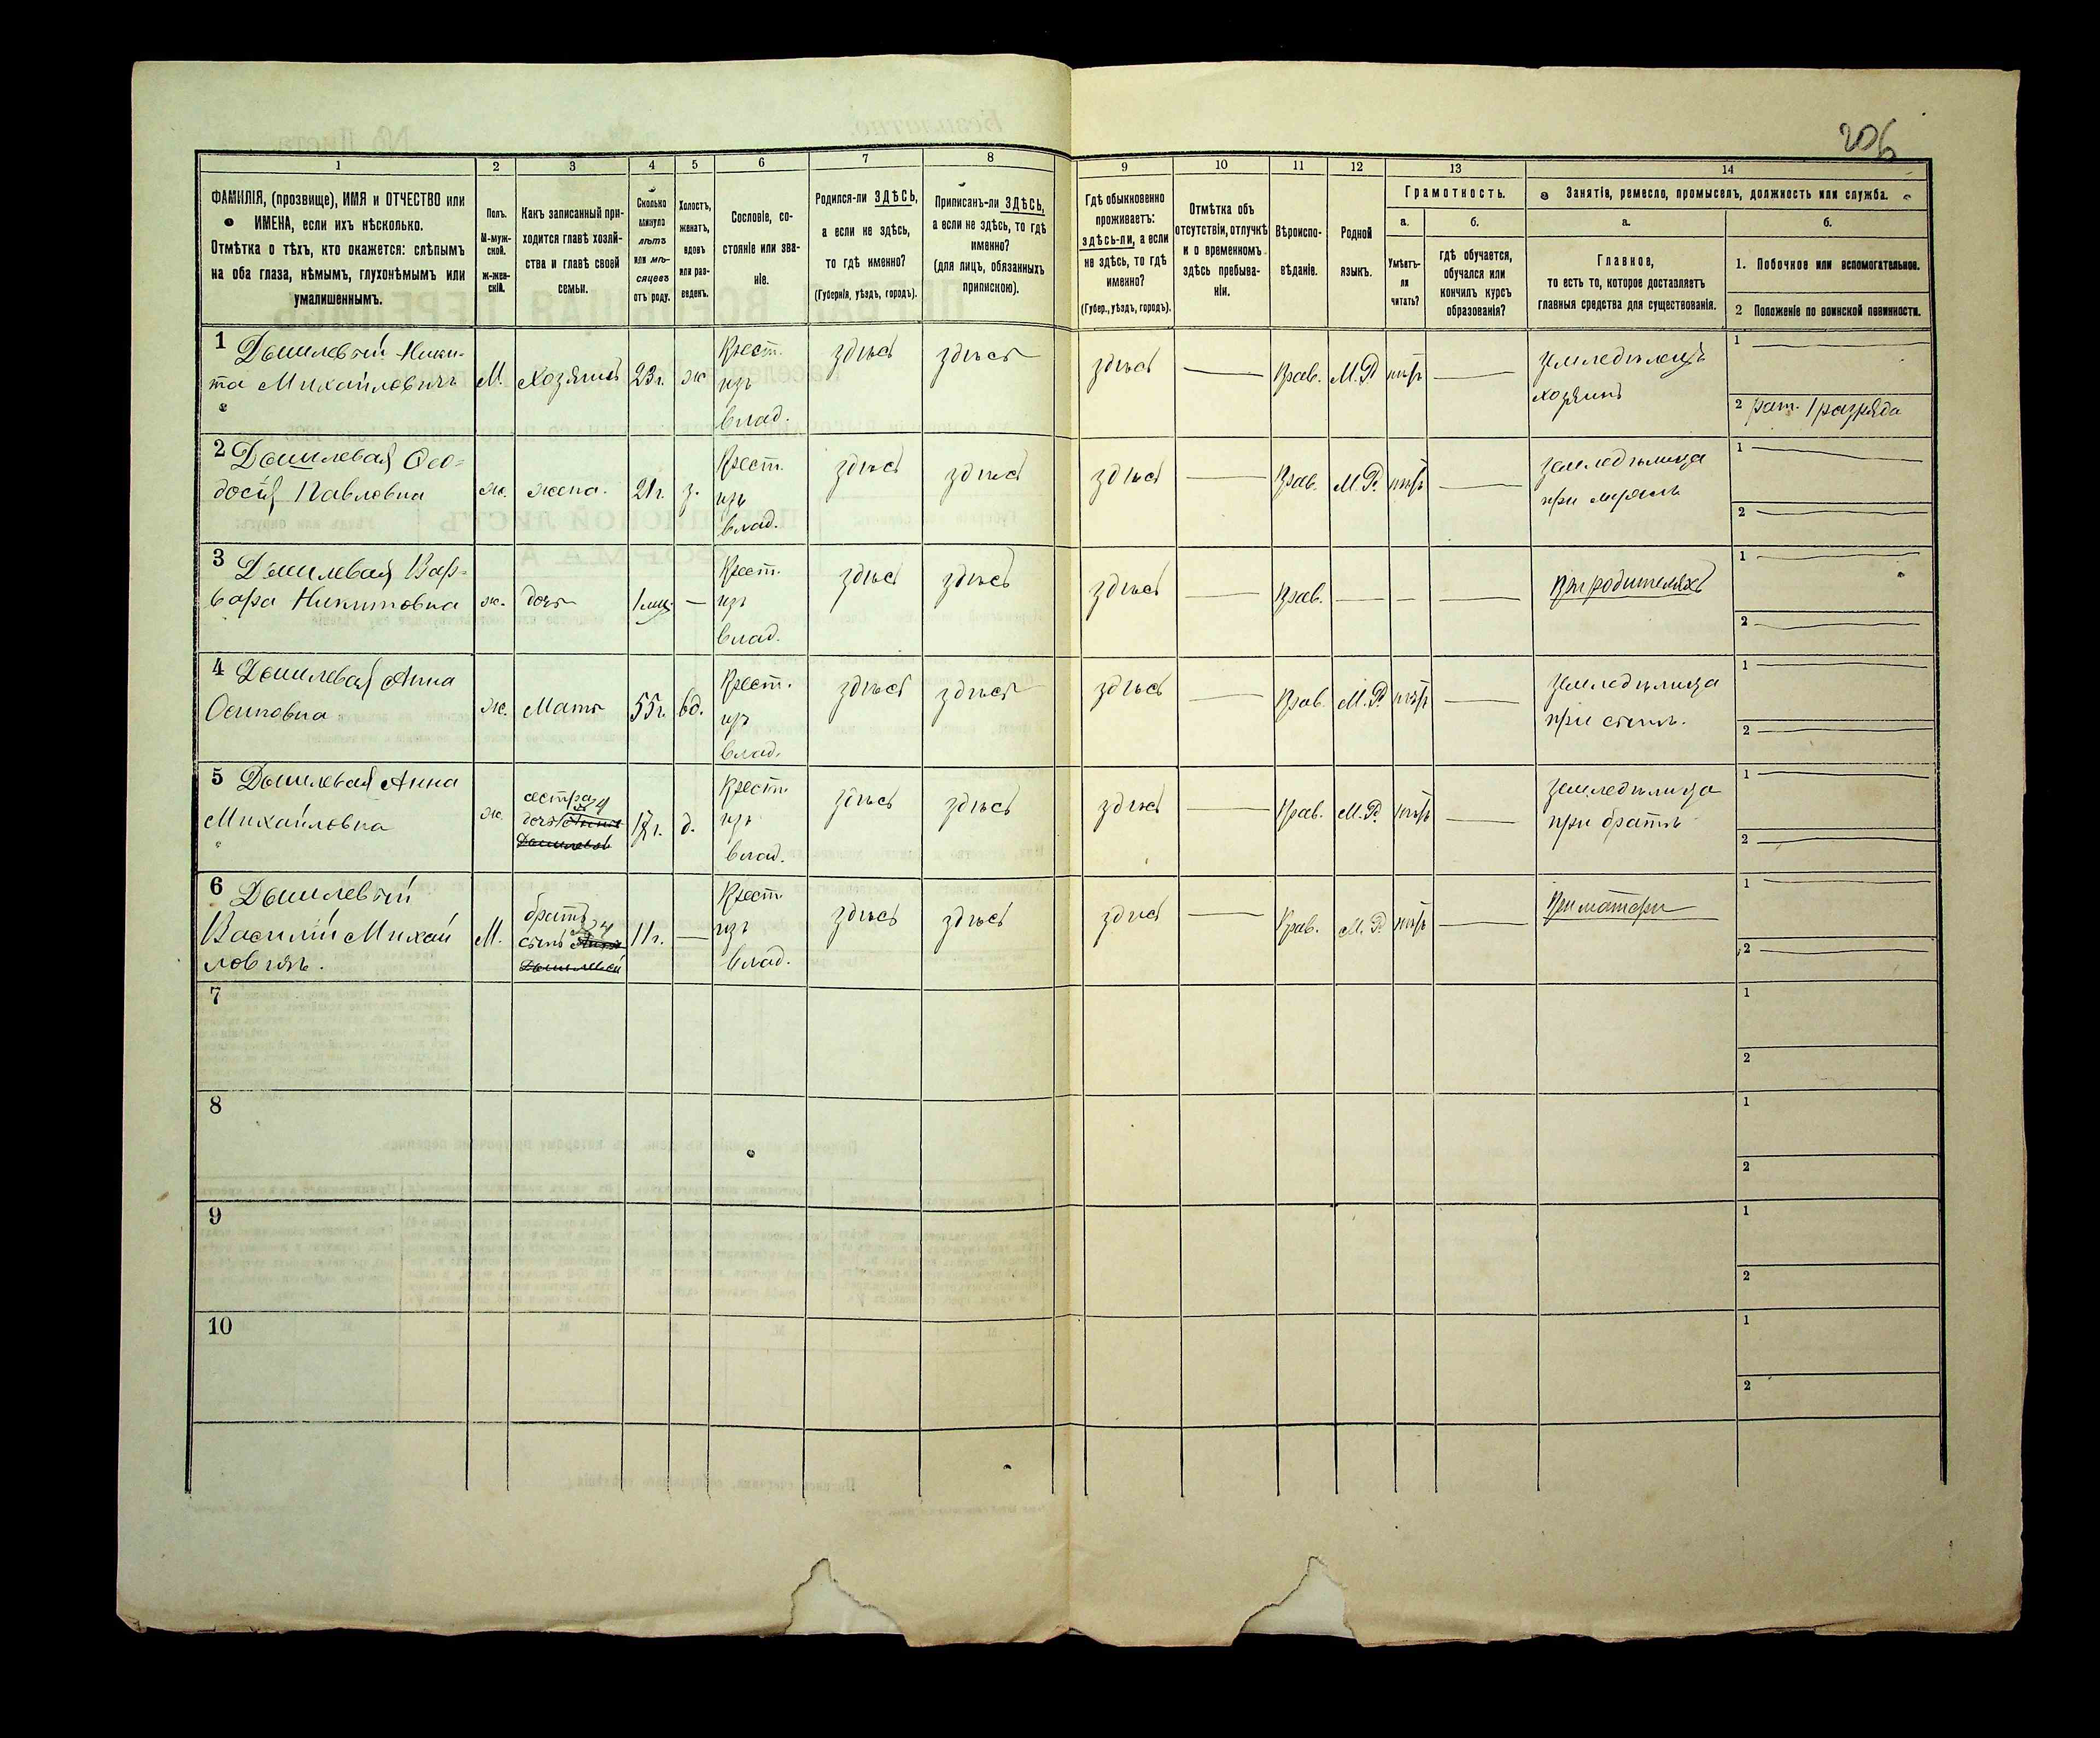 206
1 2 3 4 5 6 7 8 9 10 11 12 13 14
ФАМИЛІЯ, (прозвище), ИМЯ и ОТЧЕСТВО или
ИМЕНА, если ихъ нѣсколько.
Отмѣтка о тѣхъ, кто окажется: слѣпымъ
на оба глаза, нѣмымъ, глухонѣмымъ или
умалишеннымъ.
Полъ.
М-муж-
ской.
ж-жен-
скій.
Какъ записанный при-
ходится главѣ хозяй-
ства и главѣ своей
семьи.
Сколько
минуло
лѣтъ
или мѣ-
сяцевъ
отъ роду.
Холостъ,
женатъ,
вдовъ
или раз-
веденъ.
Сословіе, со-
стояніе или зва-
ніе.
Родился-ли ЗДѢСЬ,
а если не здѣсь,
то гдѣ именно?
(Губернія, уѣздъ, городъ).
Приписанъ-ли ЗДѢСЬ,
а если не здѣсь, то гдѣ
именно?
(для лицъ, обязанныхъ
припискою).
Гдѣ обыкновенно
проживаетъ:
здѣсь-ли, а если
не здѣсь, то гдѣ
именно?
(Губер., уѣздъ, городъ).
Отмѣтка объ
отсутствіи, отлучкѣ
и о временномъ
здѣсь пребыва-
ніи.
Вѣроиспо-
вѣданіе.
Родной
языкъ.
Грамотность.
а.
Умѣетъ-
ли
читать?
б.
гдѣ обучается,
обучался или
кончилъ курсъ
образованія?
Занятіе, ремесло, промыселъ, должность или служба.
а.
Главное,
то есть то, которое доставляетъ
главныя средства для существованія.
б.
1. Побочное или вспомогательное.
2 Положеніе по воинской повинности.
1 Дышлевый Ники-
та Михайловичъ
М.
Хозяинъ
23 г.
ж
Крест.
изъ
влад.
здѣсь
здѣсь
здѣсь
Прав.
М.Р.
нѣтъ
земледѣлецъ
хозяинъ
1
2 рат. 1 разряда
2 Дышлевая Ѳео-
досія Павловна
ж.
жена.
21 г.
з.
Крест.
изъ
влад.
здѣсь
здѣсь
здѣсь
Прав.
М.Р.
нѣтъ
земледѣлица
при мужѣ
1
2
3 Дышлевая Вар-
вара Никитовна
ж.
дочь
1 мѣс.
Крест.
изъ
влад.
здѣсь
здѣсь
здѣсь
Прав.
При родителяхъ
1
2
4 Дышлевая Анна
Осиповна
ж.
Мать
55 г.
вд.
Крест.
изъ
влад.
здѣсь
здѣсь
здѣсь
Прав.
М.Р.
нѣтъ
земледѣлица
при сынѣ.
1
2
5 Дышлевая Анна
Михайловна
ж.
сестра
4
дочь Анны
Дышлевой
г.
д.
Крест.
изъ
влад.
здѣсь
здѣсь
здѣсь
Прав.
М.Р.
нѣтъ
земледѣлица
при братѣ
1
2
6 Дышлевый
Василій Михай
ловичъ.
М.
братъ
4
сынъ Анны
Дышлевой
11 г.
Крест.
изъ
влад.
здѣсь
здѣсь
здѣсь
Прав.
М.Р.
нѣтъ
При матери
1
2
7
1
2
8
1
2
9
1
2
10
1
2